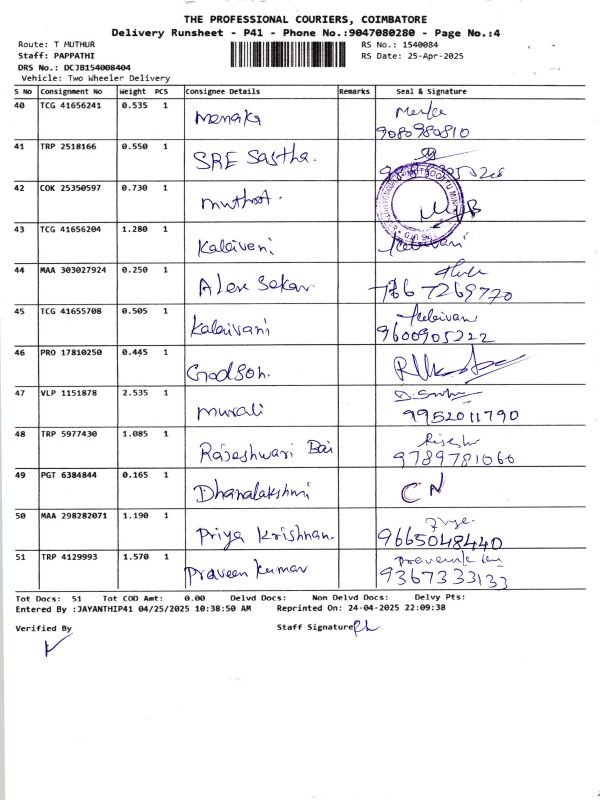 THE PROFESSIONAL COURIERS, COIMBATORE
Delivery Runsheet - P41 - Phone No.:9047080280 - Page No.:4
Route: T MUTHUR RS No.: 1540084
Staff: PAPPATHI RS Date: 25-Apr-2025
DRS No.: DCJB154008404
Vehicle: Two Wheeler Delivery
S No Consignment No Weight PCS Consignee Details Remarks Seal & Signature
40 TCG 41656241 0.535 1 Menaka
9080980810
41 TRP 2518166 0.550 1 SRE Sastha.
42 COK 25350597 0.730 1 Muthoot.
43 TCG 41656204 1.280 1 Kalaivani Kalaivani
44 MAA 303027924 0.250 1 Alex Sekar.
786 7269770
45 TCG 41655708 0.505 1 Kalaivani Kalaivani
9600905222
46 PRO 17810250 0.445 1 Godson.
47 VLP 1151878 2.535 1 Murali
9952011790
48 TRP 5977430 1.085 1 Rajeshwari Bai
9789781066
49 PGT 6384844 0.165 1 Dhanalakshmi CN
50 MAA 298282071 1.190 1 Priya Krishnan.
9665048440
51 TRP 4129993 1.570 1 Praveen Kumar
9367333133
Tot Docs: 51 Tot COD Amt: 0.00 Delvd Docs: Non Delvd Docs: Delvy Pts:
Entered By :JAYANTHIP41 04/25/2025 10:38:50 AM Reprinted On: 24-04-2025 22:09:38
Verified By Staff Signature